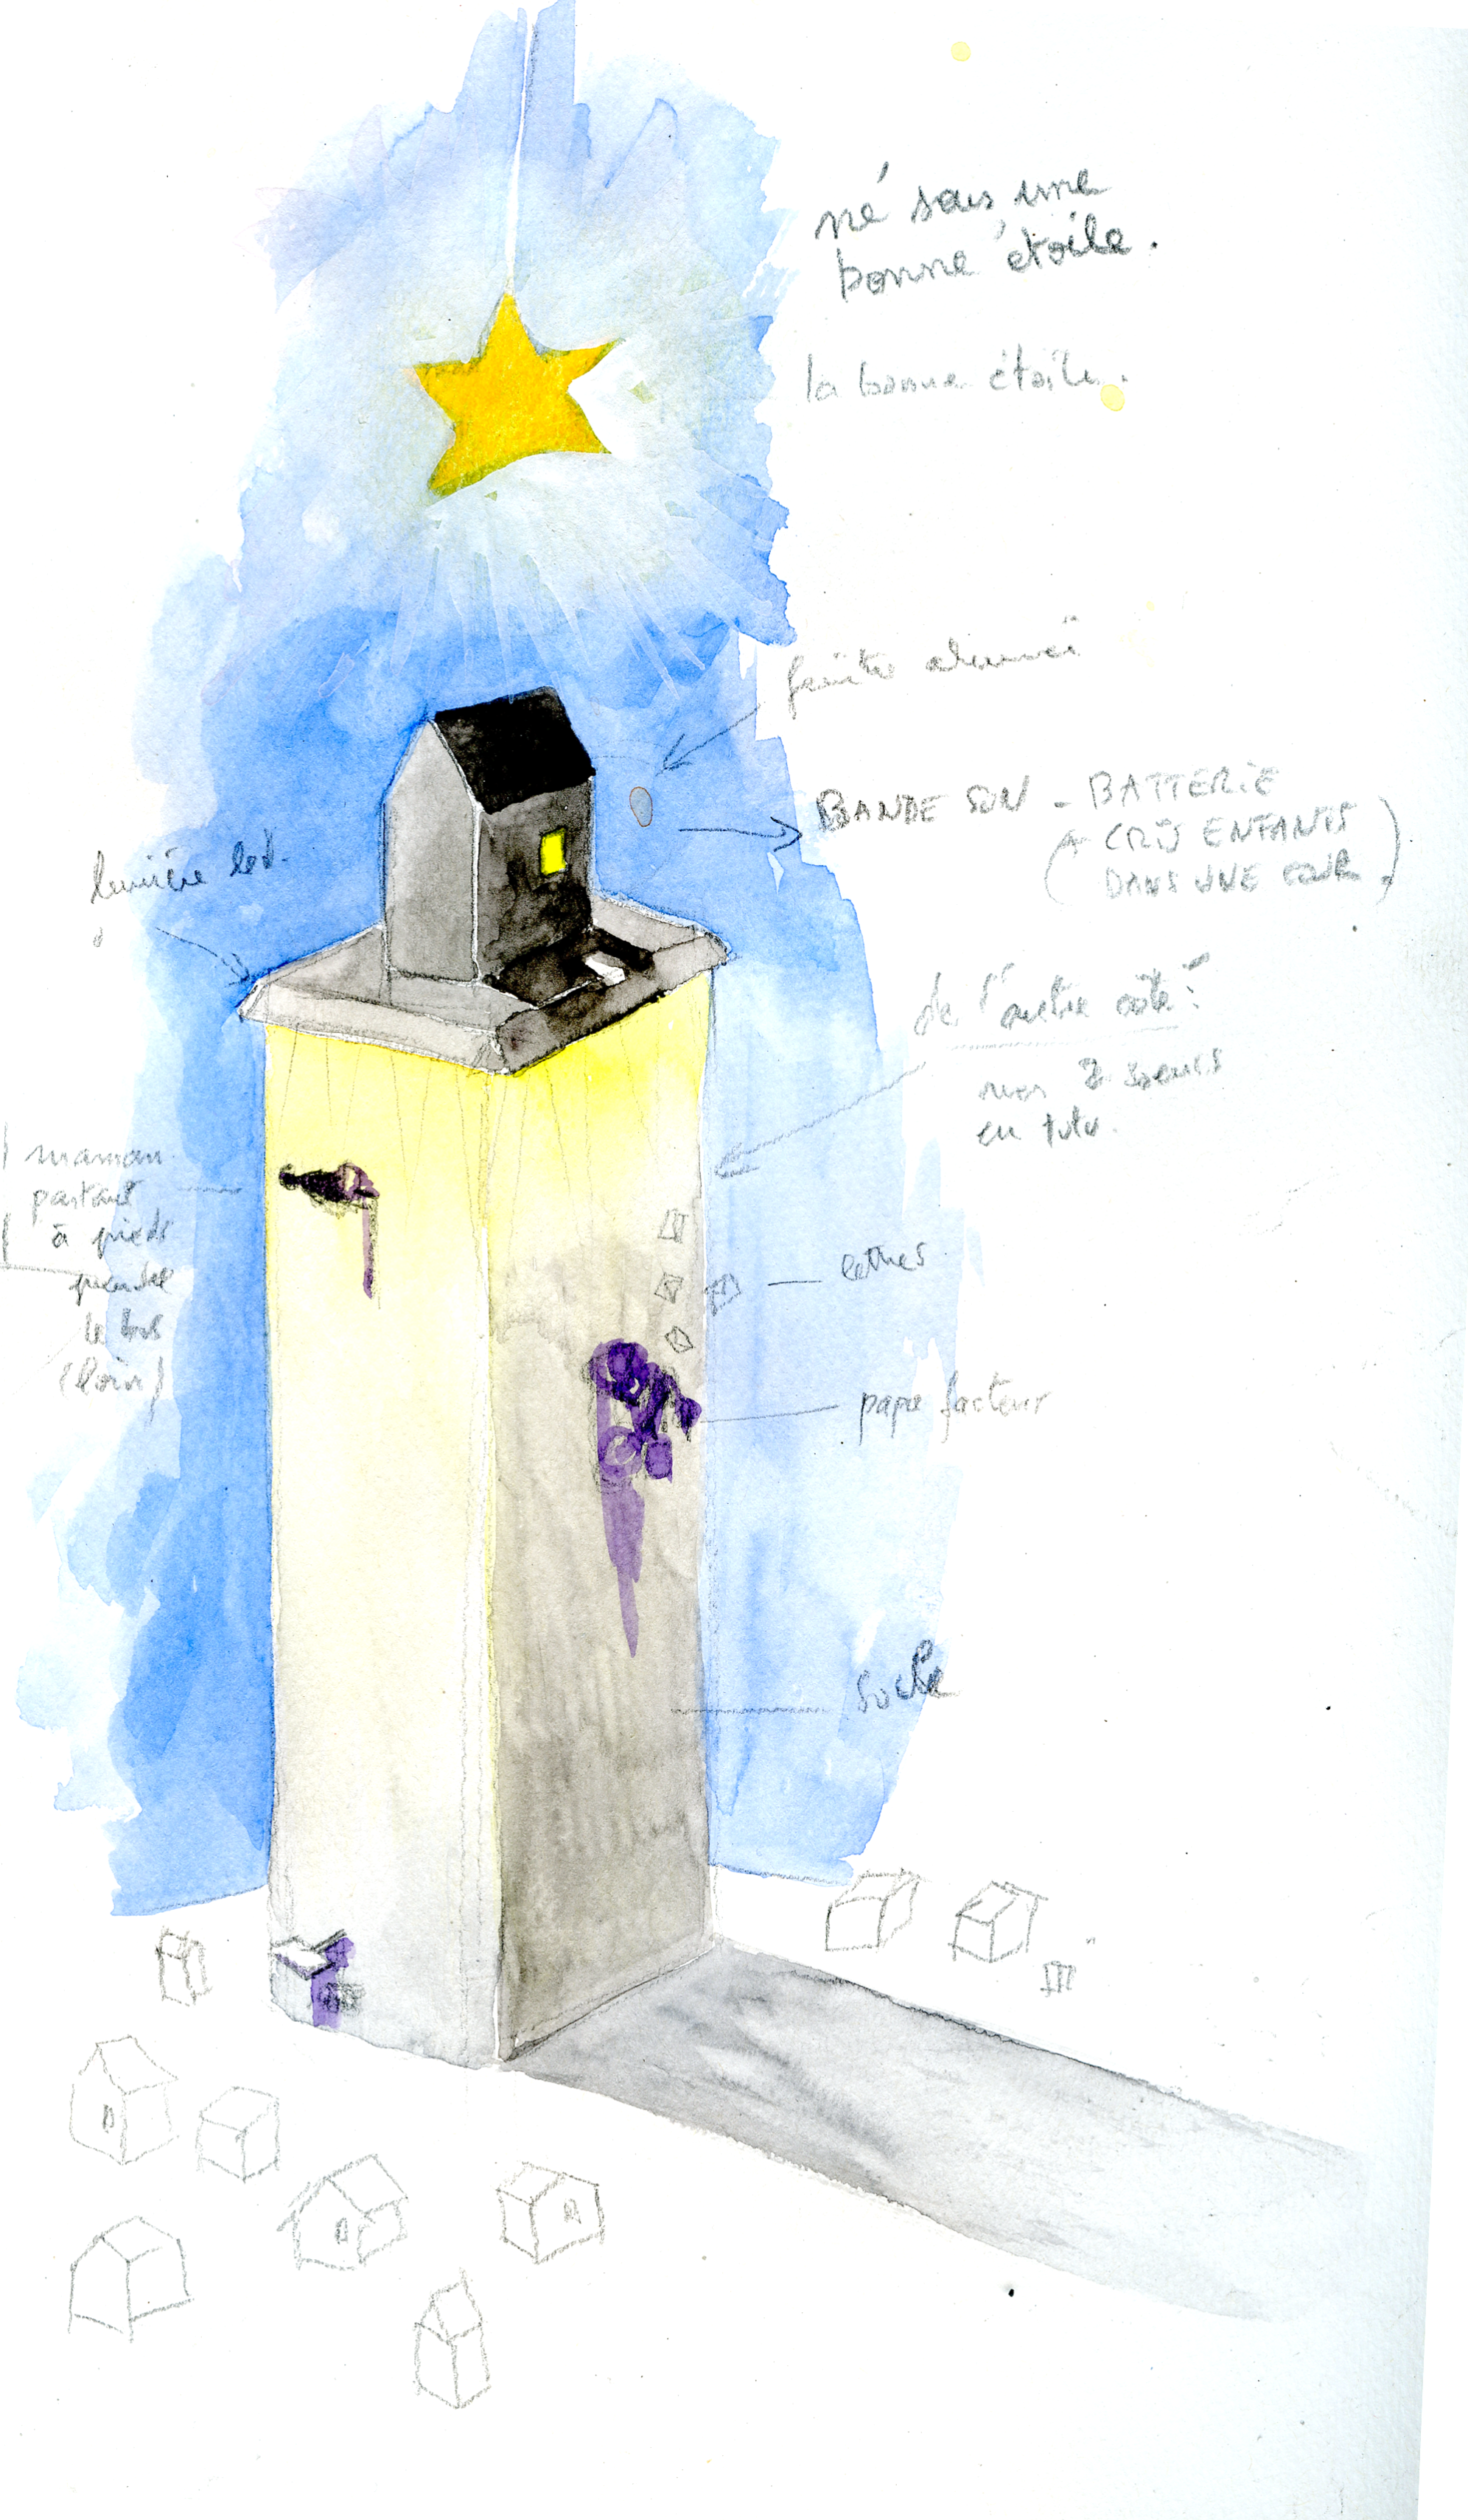 né sous une
bonne étoile.
la bonne étoile.
lumière led.
BANDE SON - BATTERIE
CRIS ENFANTS
DANS UNE COUR.
de l'autre côté:
mes 2 soeurs
en tutu.
maman
partant
à pieds
prendre
le bus
(loin)
lettres
papa facteur
socle